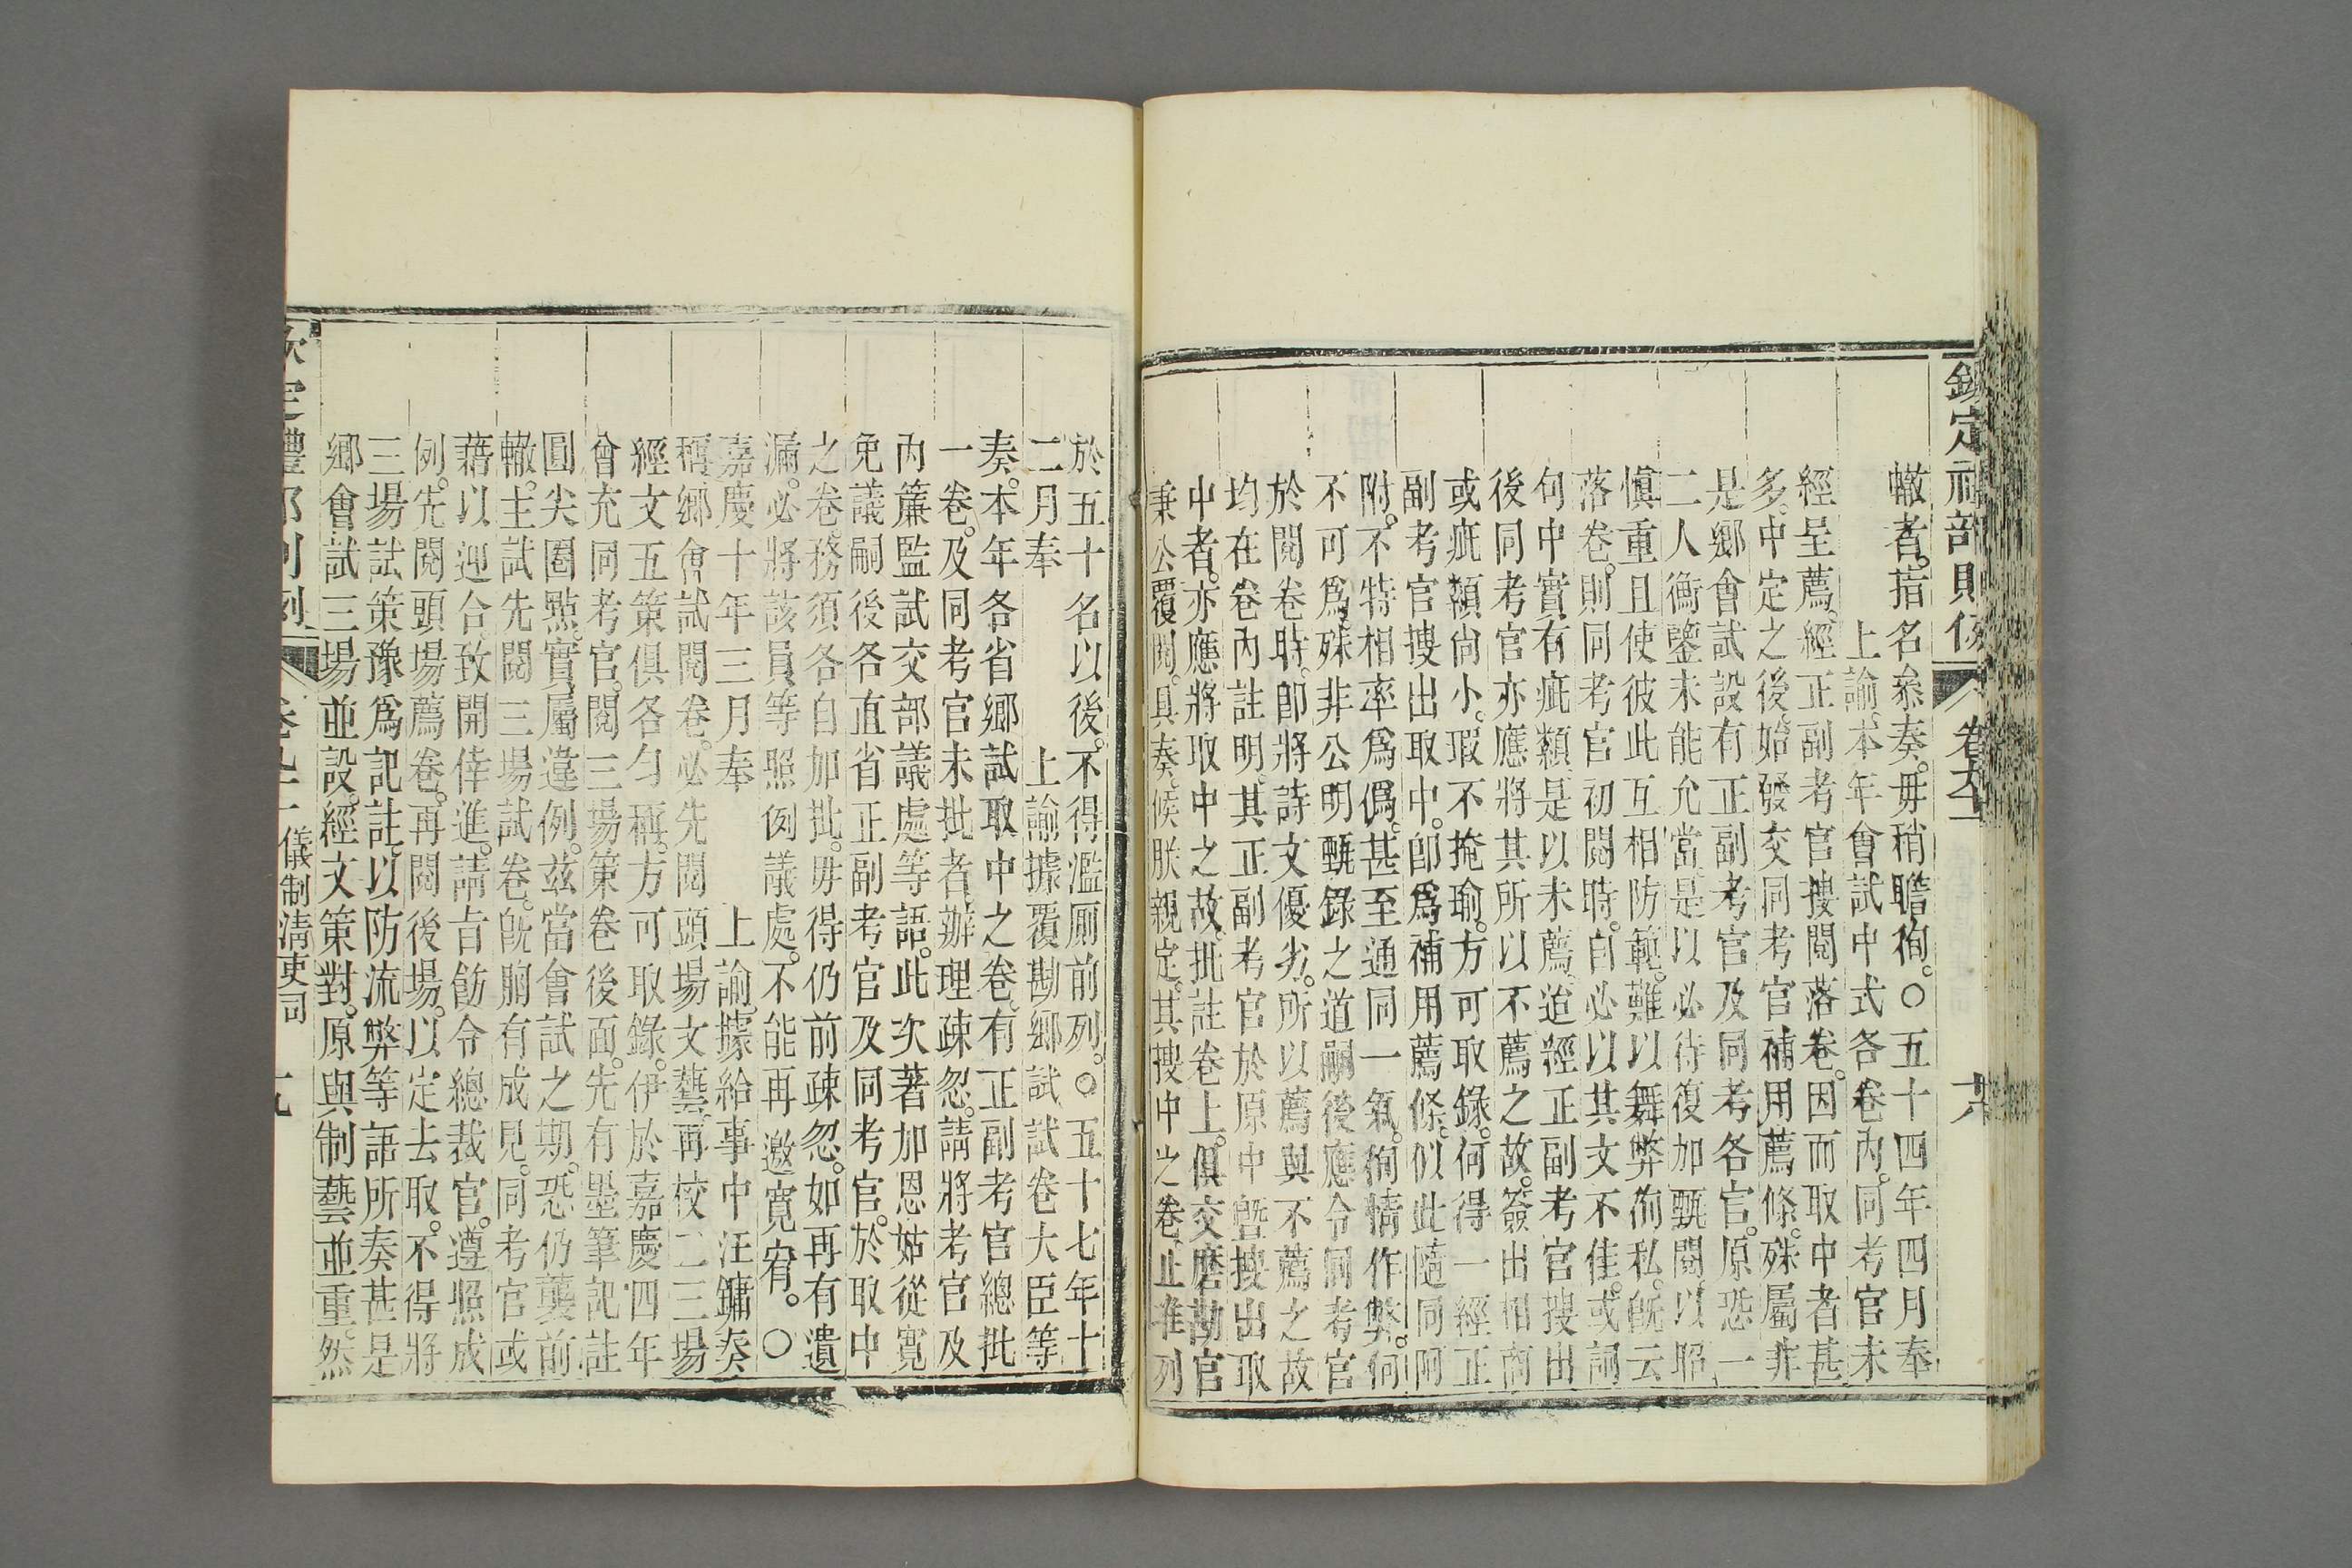 欽定禮部則例 卷九十一 十八
轍者。指名叅奏。毋稍瞻徇。○五十四年四月奉
上諭。本年會試中式各卷內。同考官未
經呈薦。經正副考官搜閱落卷。因而取中者甚
多。中定之後。始發交同考官補用薦條。殊屬非
是。鄉會試設有正副考官及同考各官。原恐一
二人衡鑒未能允當。是以必待復加甄閱。以昭
愼重。且使彼此互相防範。難以舞弊徇私。旣云
落卷。則同考官初閱時。自必以其文不佳。或詞
句中實有疵纇。是以未薦。迨經正副考官搜出
後。同考官亦應將其所以不薦之故。簽出相商
或疵纇尙小。瑕不掩瑜。方可取錄。何得一經正
副考官搜出取中。卽爲補用薦條。似此隨同阿
附。不特相率爲僞。甚至通同一氣。徇情作弊。何
不可爲。殊非公明甄錄之道。嗣後應令同考官
於閱卷時。卽將詩文優劣。所以薦與不薦之故
均在卷內註明。其正副考官於原中暨搜出取
中者。亦應將取中之故。批註卷上。俱交磨勘官
秉公覆閱。具奏。候朕親定。其搜中之卷。止准列
於五十名以後。不得濫厠前列。○五十七年十
二月奉 上諭據覆勘鄉試試卷大臣等
奏。本年各省鄉試取中之卷。有正副考官總批
一卷。及同考官未批者。辦理疎忽。請將考官及
內簾監試交部議處等語。此次著加恩姑從寬
免議。嗣後各直省正副考官及同考官。於取中
之卷。務須各自加批。毋得仍前疎忽。如再有遺
漏。必將該員等照例議處。不能再邀寬宥。○
嘉慶十年三月奉 上諭。據給事中汪鏞奏
稱。鄉會試閱卷。必先閱頭場文藝。再校二三場
經文五策。俱各勻稱。方可取錄。伊於嘉慶四年
曾充同考官。閱三場策卷後面。先有墨筆記註
圓尖圈㸃。實屬違例。茲當會試之期。恐仍襲前
轍。主試先閱三場試卷。旣胸有成見。同考官或
藉以迎合。致開倖進。請旨飭令總裁官。遵照成
例。先閱頭場薦卷。再閱後場。以定去取。不得將
三場試策豫爲記註。以防流弊等語。所奏甚是
鄉會試三場並設。經文策對。原與制藝並重。然
欽定禮部則例 卷九十一 儀制淸吏司 十九